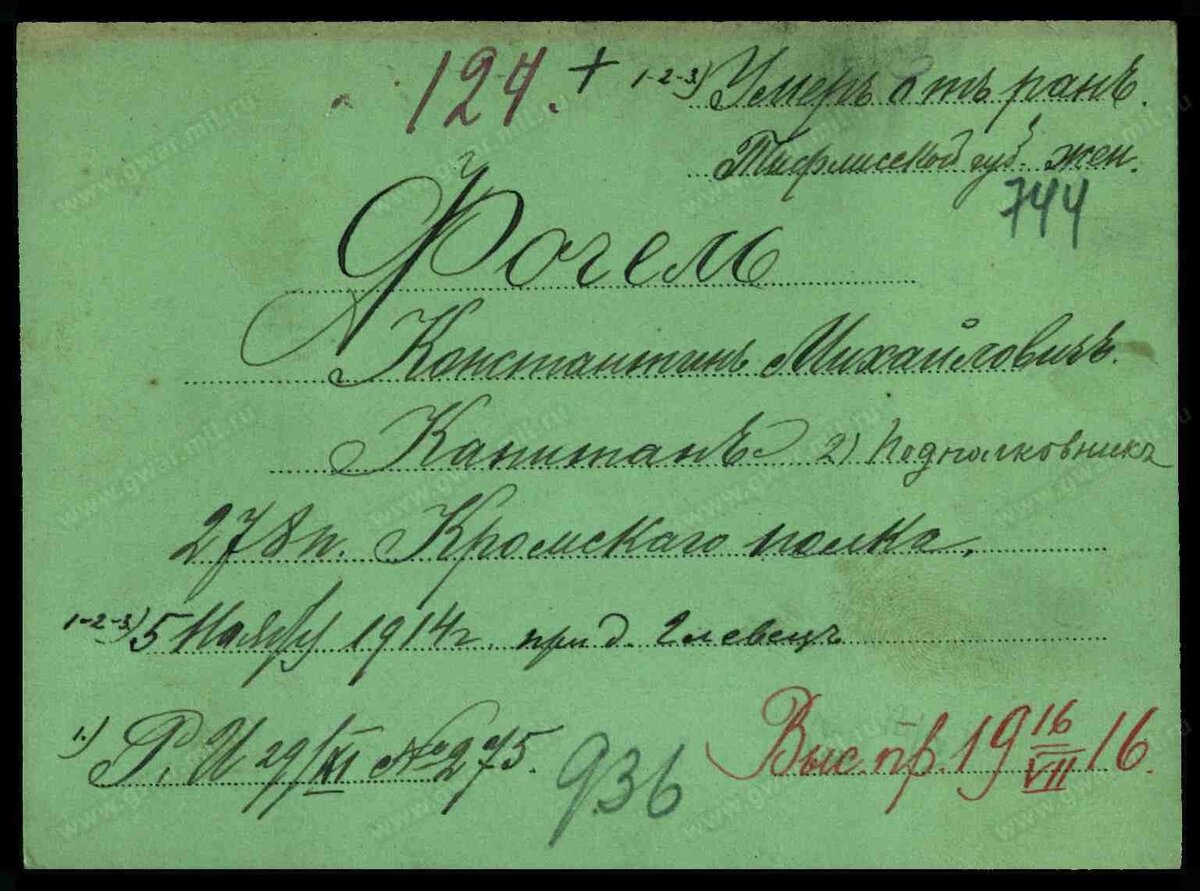 124. + 1-2-3) Умеръ отъ ранъ.
Тифлисской губ. жен.
744
Фогель
Константинъ Михайловичъ.
Капитанъ 2) Подполковникъ
278 п. Кромскаго полка.
1-2-3) 5 Ноября 1914 г. при д. Глевецъ
1.) Р. И 29/XI № 275. 936 Выс. пр. 19 16/VII 16.
www.gwar.mil.ru